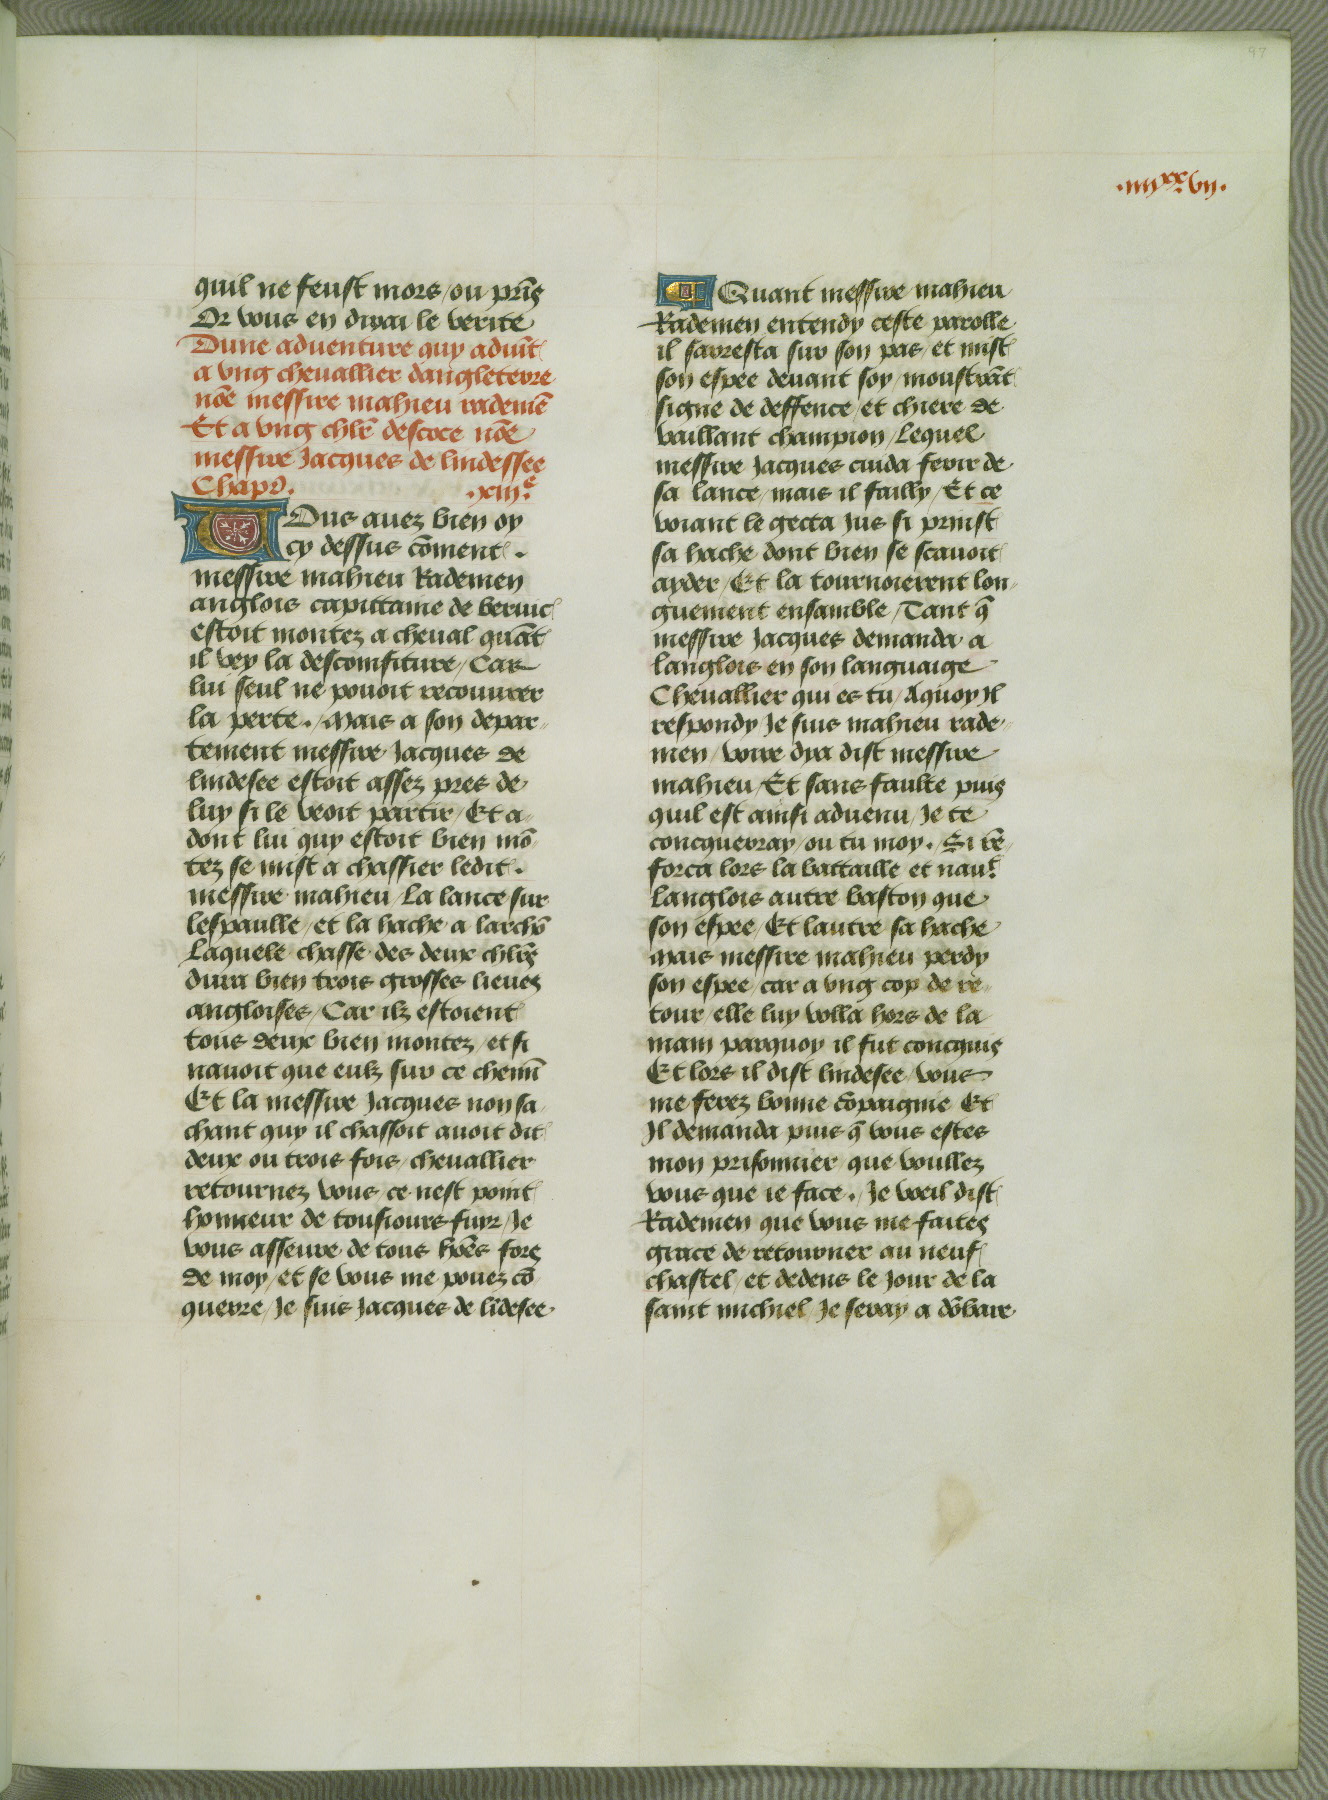 97
.iiiixx.vij.
quil ne feust mors / ou prīs
Or vous en dirai le verite
Dune aduenture quy aduīt
a vng cheuallier dangleterre
nōe messire mahieu rademē
Et a vng chlr̄ descoce nōe
messire Jacques de lindessee
Chapr̄. .xiije.
Vous auez bien oy
cy dessus cōment .
messire mahieu Rademen
anglois capittaine de beruic
estoit montez a cheual quāt
il vey la descomfiture / Car
lui seul ne pouoit recouurer
la perte . / Mais a son depar-
tement messire Jacques de
lindesee estoit assez pres de
luy si le veoit partir / Et a-
dont lui quy estoit bien mō-
tez se mist a chassier ledit .
messire mahieu / La lance sur
lespaulle / et la hache a larchō
Laquele chasse des deux chlrs̄
dura bien trois grosses lieues
angloises / Car ilz estoient
tous deux bien montez / et si
nauoit que eulz sur ce chemī
Et la messire Jacques non sa-
chant quy il chassoit auoit dit
deux ou trois fois / cheuallier
retournez vous / ce nest point
honneur de tousiours fuyr / Je
vous asseure de tous hōes fors
de moy / et se vous me pouez cō-
querre / Je suis Jacques de līdesee
Quant messire mahieu
Rademen entendy ceste parolle
il sarresta sur son pas / et mist
son espee deuant soy / moustrāt
signe de deffence / et chiere de
vaillant champion / Lequel
messire Jacques cuida ferir de
sa lance / mais il failly / Et ce
voiant le gecta Jus si prinst
sa hache dont bien se scauoit
ayder / Et la tournoierent lon-
guement ensamble / Tant q̄
messire Jacques demanda a
langlois en son languaige
Cheuallier qui es tu / Aquoy Jl
respondy Je suis mahieu rade-
men / voire dya dist messire
mahieu / Et sans faulte puis
quil est ainsi aduenu / Je te
concquerray / ou tu moy . / Si rē-
forca lors la battaille et naut.
langlois autre baston que
son espee / Et lautre sa hache
Mais messire mahieu perdy
son espee / car a vng cop de re-
tour / elle luy volla hors de la
main parquoy il fut concquis
Et lors il dist lindesee / vous
me ferez bonne cōpaignie Et
Jl demanda puis q̄ vous estes
mon prisonnier que voullez
vous que ie face . / Je veeil dist
Rademen que vous me faites
grace de retourner au neuf
chastel / et dedens le Jour de la
saint michiel / Je seray a dōbare